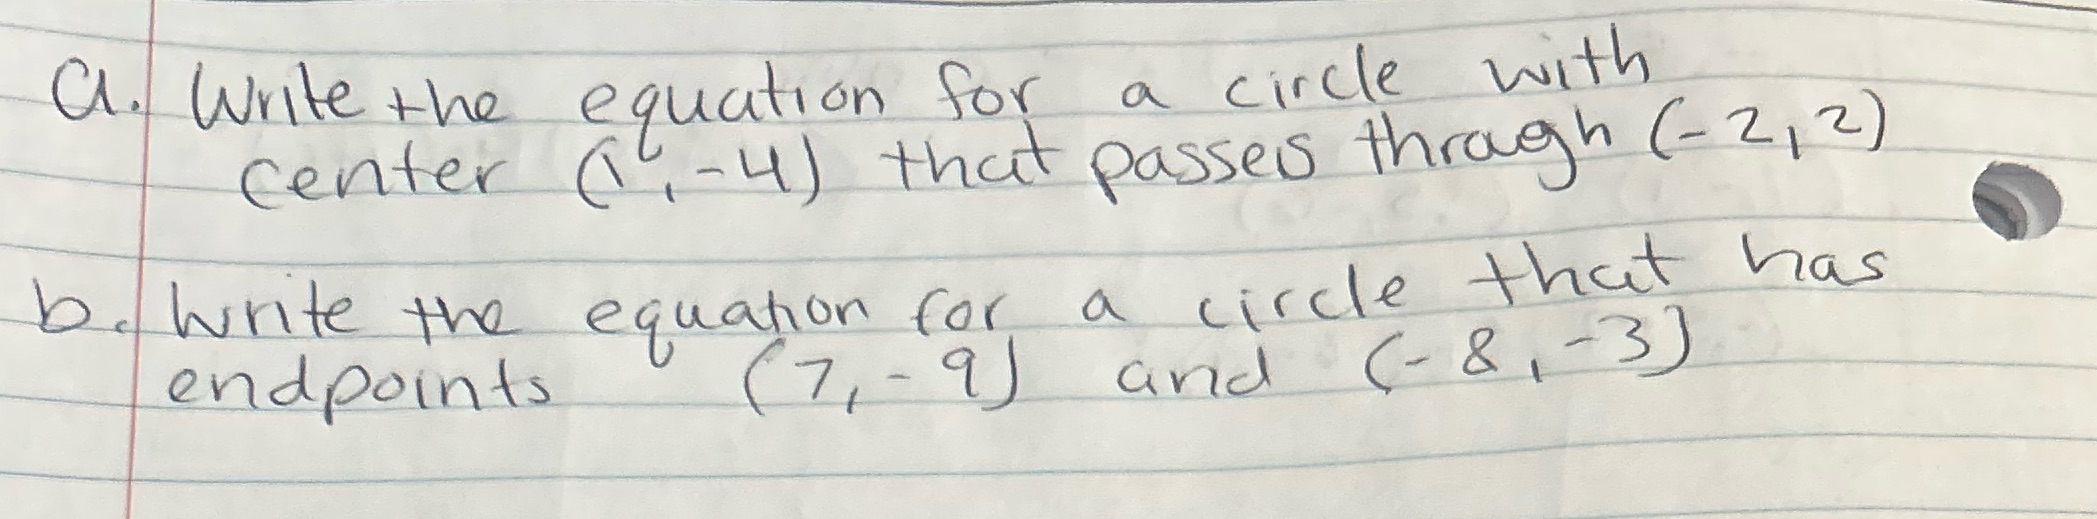 a. Write the equation for a circle with
center (1, -4) that passes through (-2, 2)
b. Write the equation for a circle that has
endpoints (7, -9) and (-8, -3)